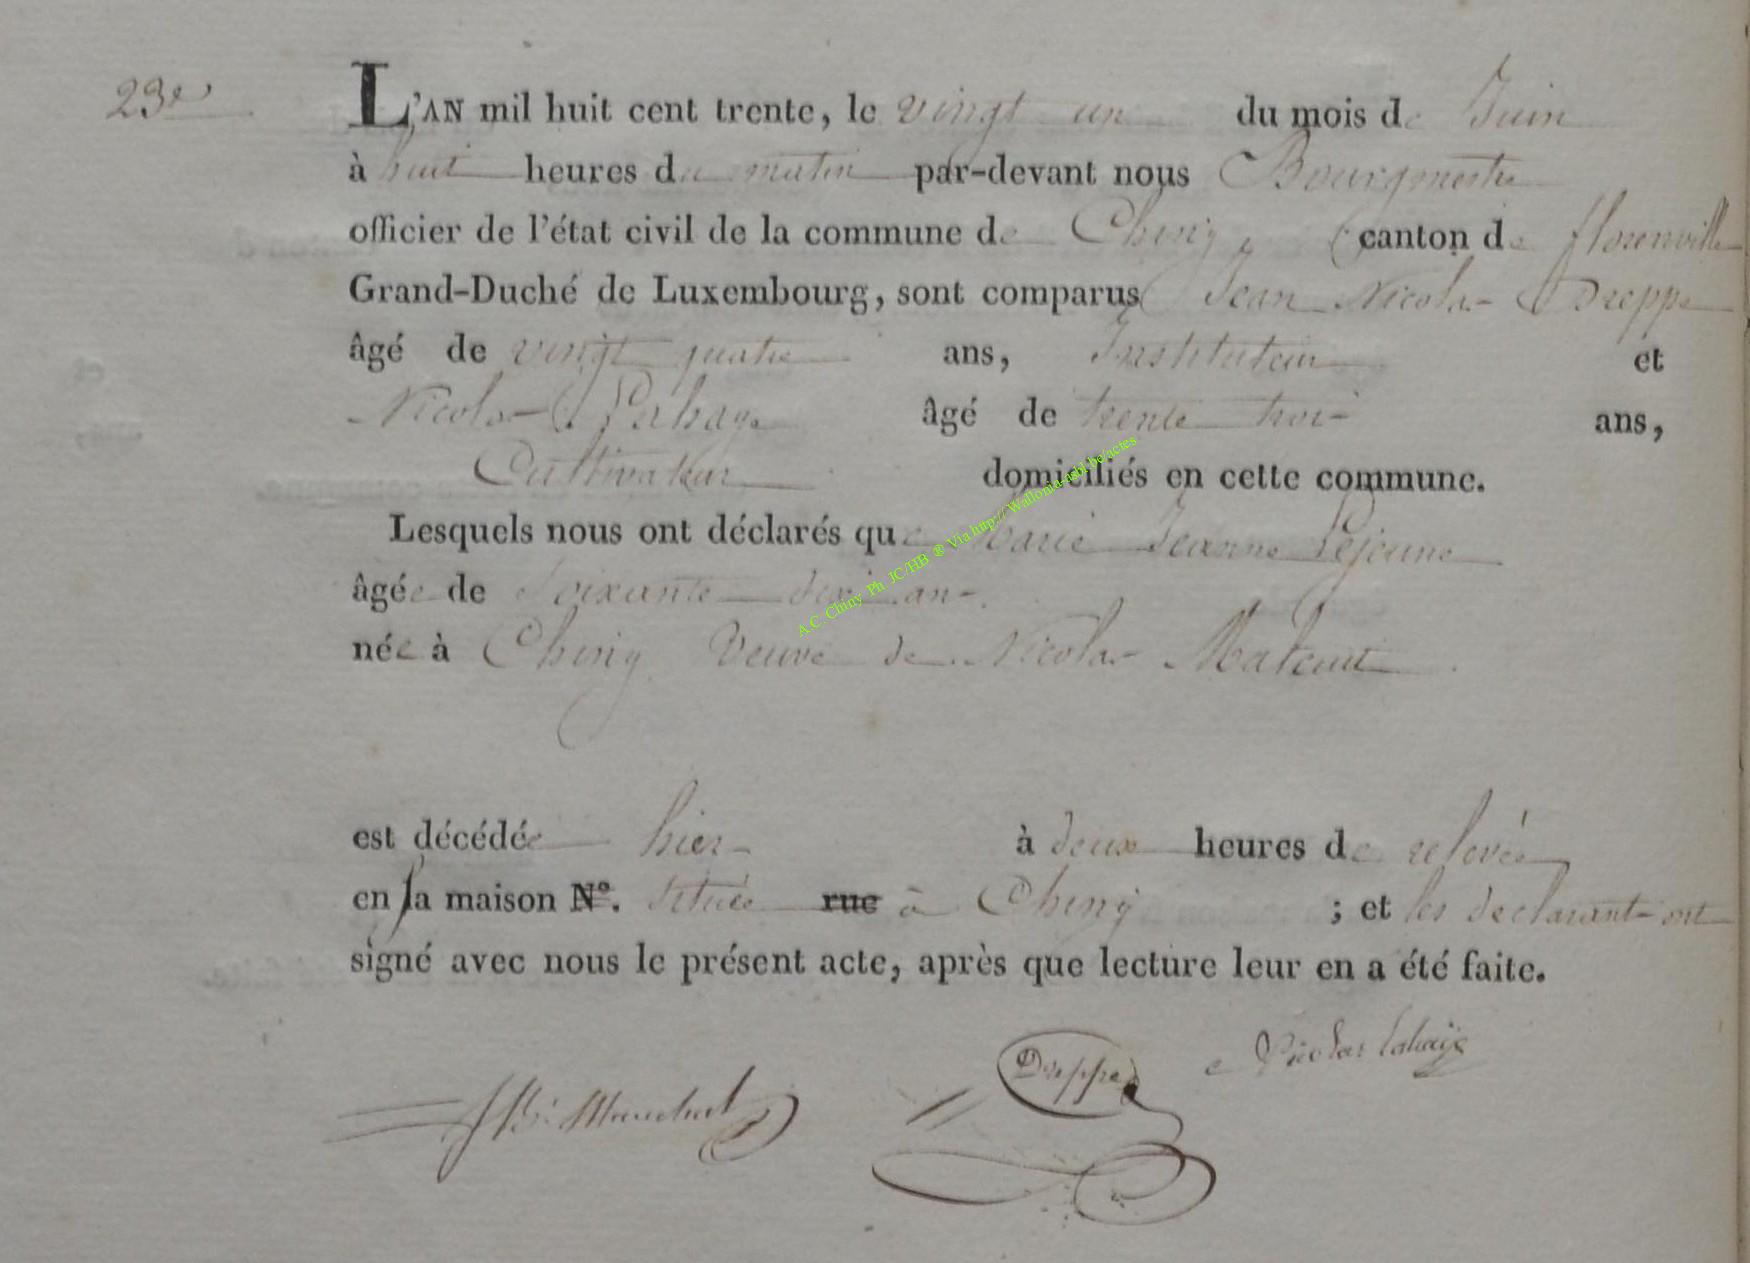 23e
L'AN mil huit cent trente, le vingt un du mois de Juin
à huit heures du matin par-devant nous Bourgmestre
officier de l'état civil de la commune de Chiny, canton de florenville
Grand-Duché de Luxembourg, sont comparus Jean Nicolas Dreppe
âgé de vingt quatre ans, Instituteur et
Nicolas Lahaye âgé de trente trois ans,
Cultivateur domiciliés en cette commune.
Lesquels nous ont déclarés que Marie Jeanne Lejeune
âgée de Soixante dix ans.
née à Chiny Veuve de Nicolas
est décédée hier à deux heures de relevée
en sa maison N°. située rue à Chiny ; et les declarants ont
signé avec nous le présent acte, après que lecture leur en a été faite.
Dreppe
Nicolas Lahaÿe
A.C. Chiny Ph JC/HB ® Via http://Wallonia-asbl.be/actes